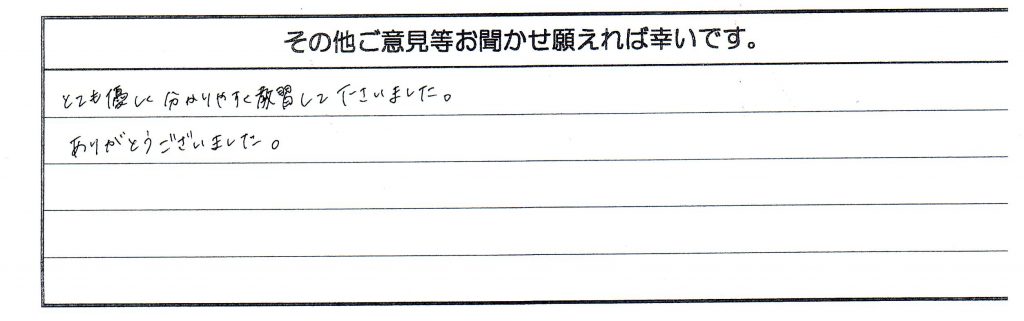 その他ご意見等お聞かせ願えれば幸いです。
とても優しく分かりやすく教習して下さいました。
ありがとうございました。